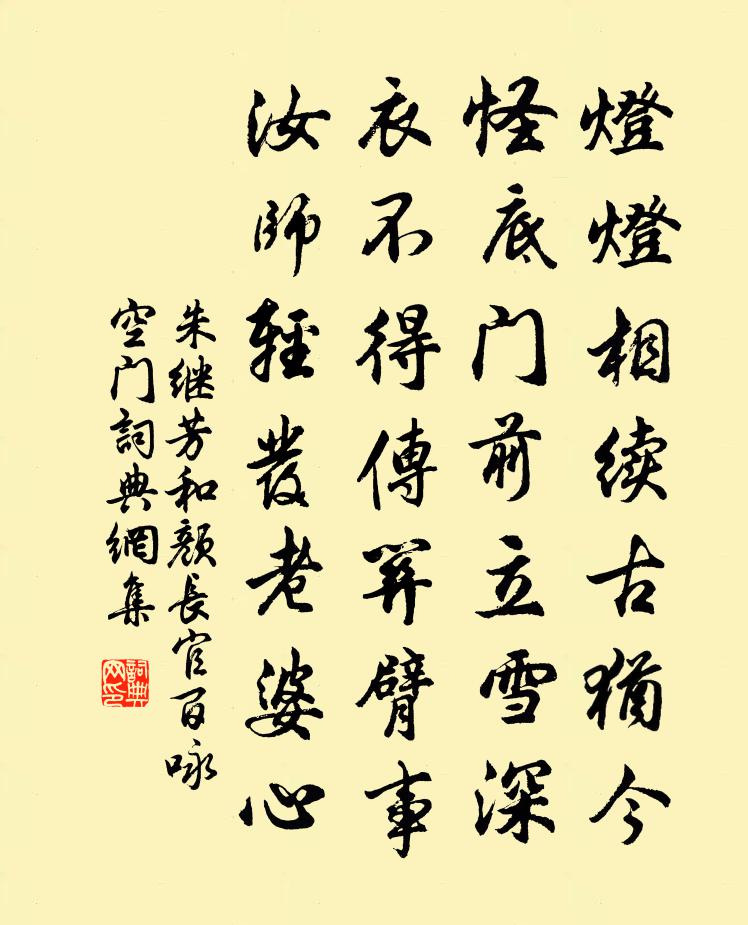 燈燈相續古猶今
怪底门前立雪深
衣不得傳筭臂事
汝師輕發老婆心
朱继芳和顏長官百咏
空门詞典網集
詞典网印